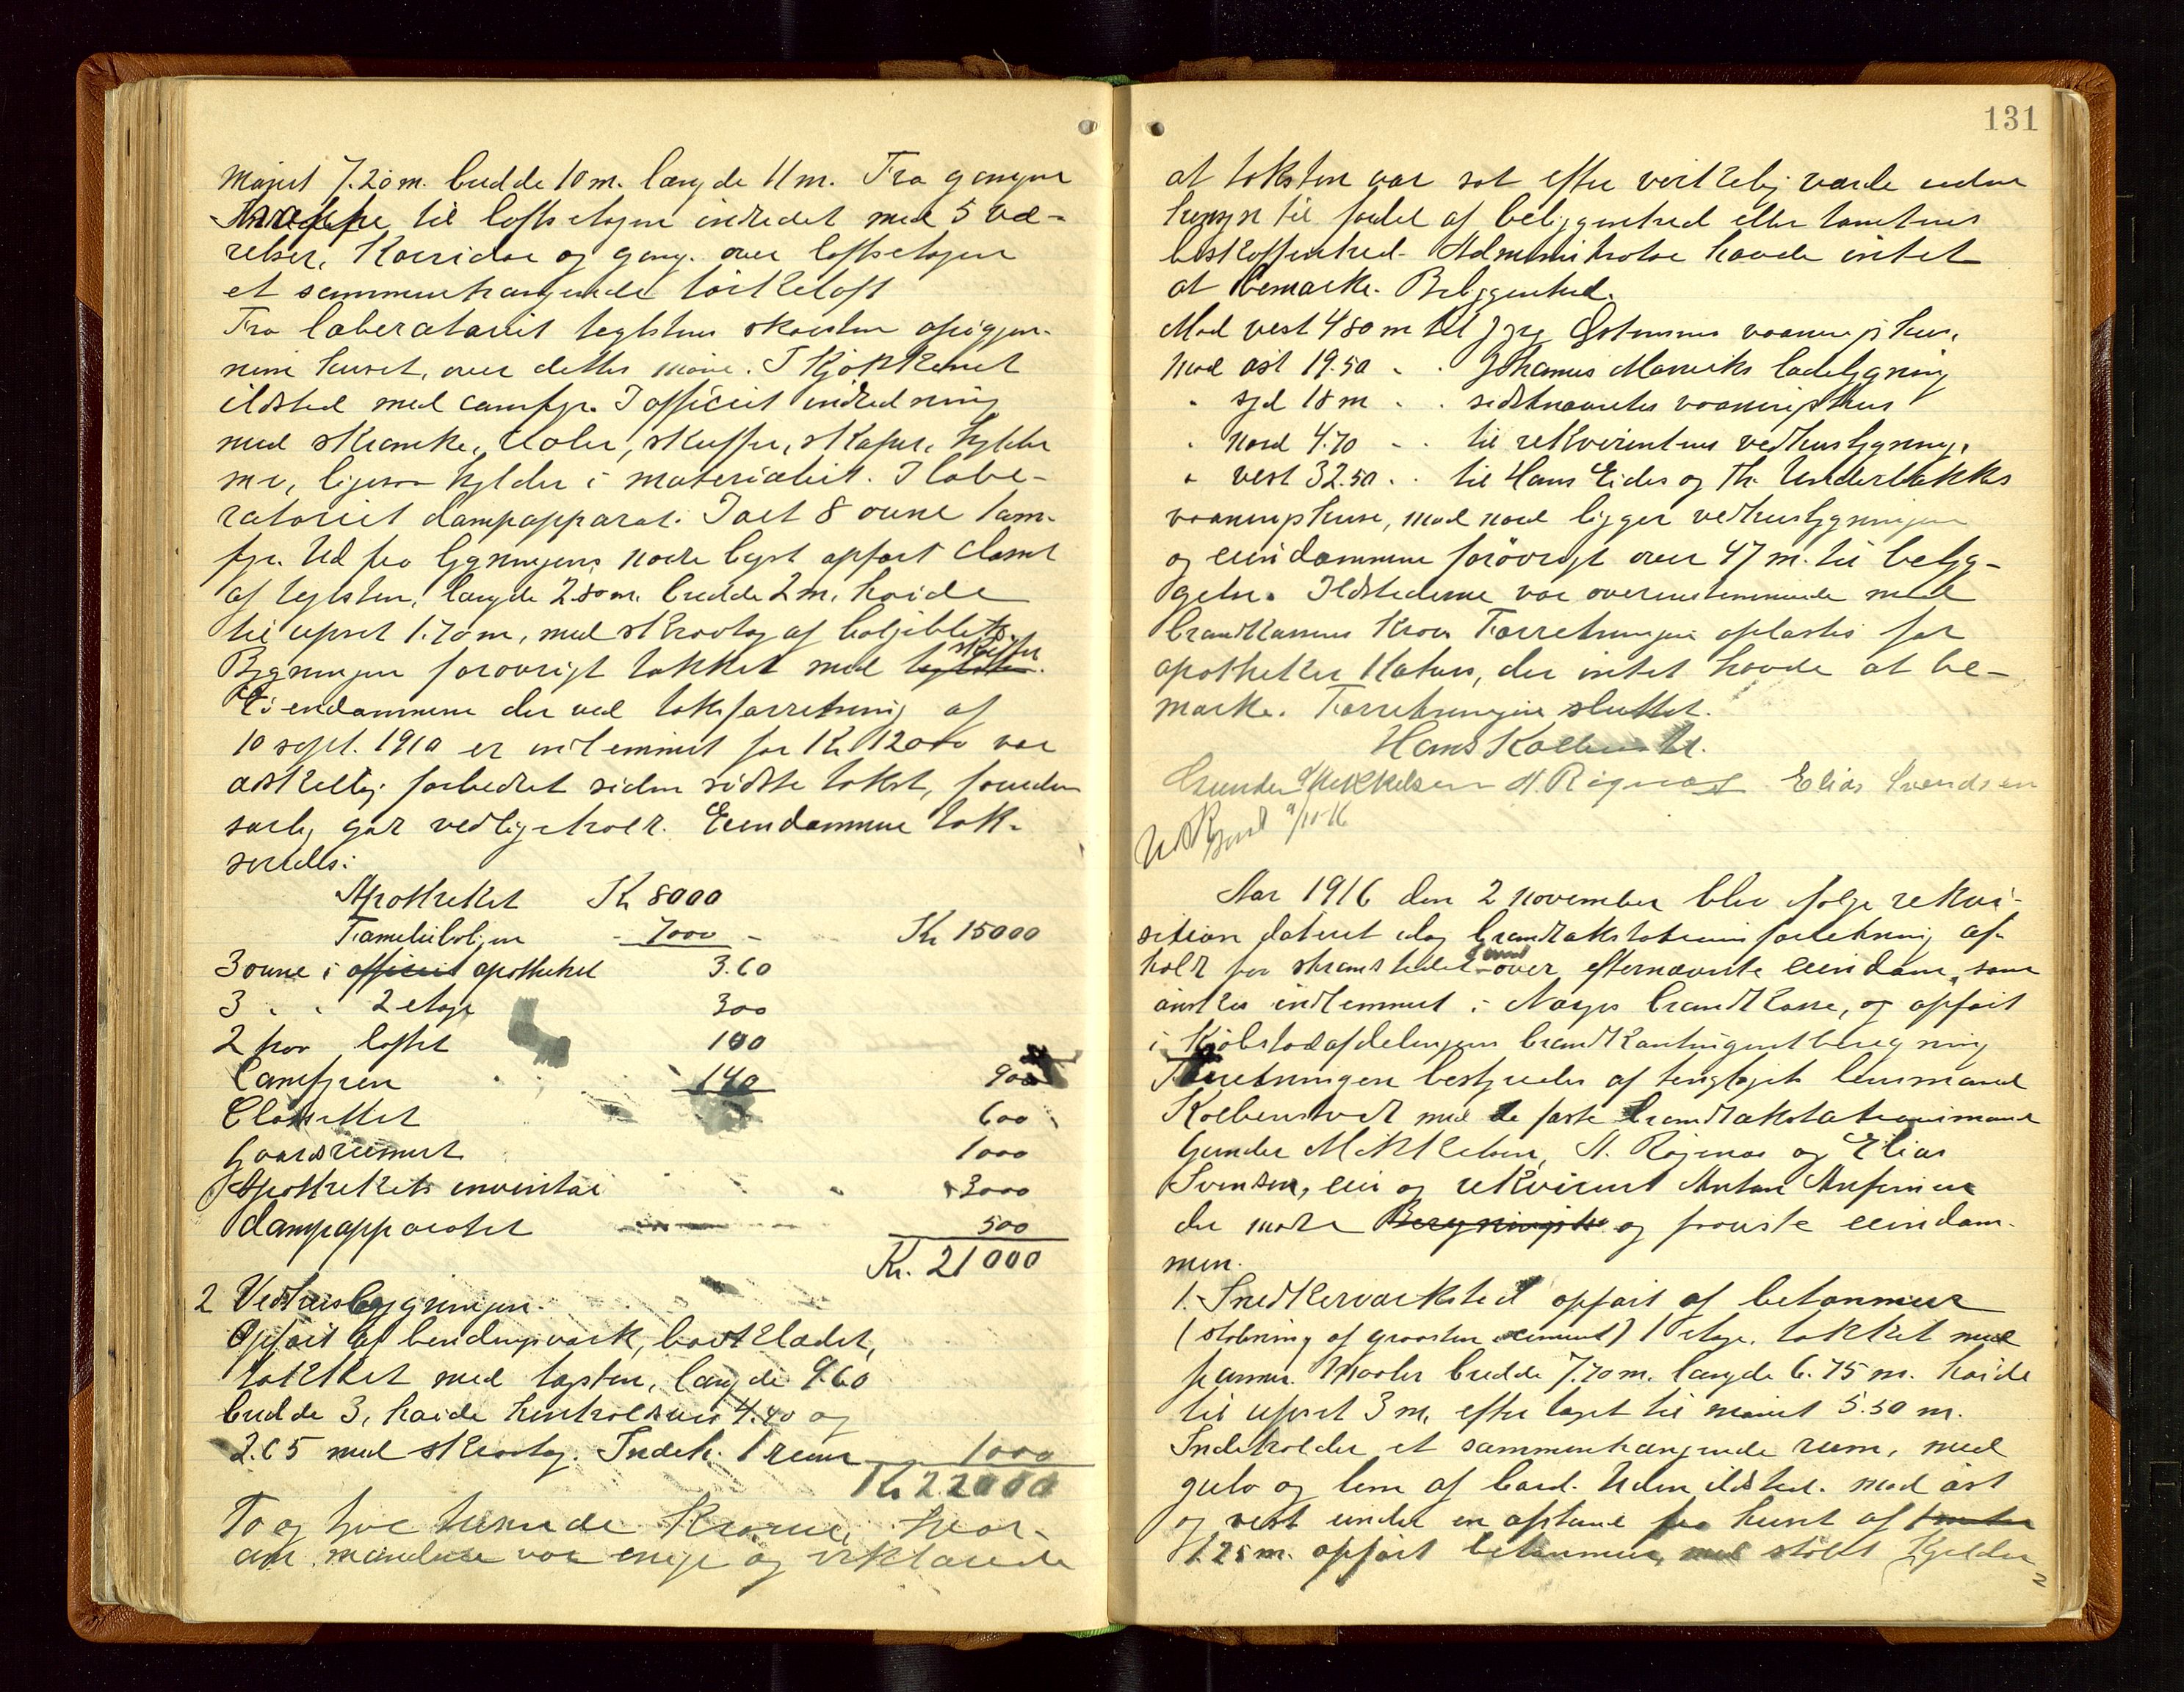 møjnet 7.20 m. bredde 10 m. længde 11 m. Fra gangen
trappe til loftsetagen indredet med 5 væ-
relser, Korridor og gang. over loftsetagen
et sammenhængende tørkeloft
Fra laberatoriet teglstens skorsten opigjen-
nem huset, over dettes møne. I Kjøkkenet
ildsted med camfyr. I officeet indredning
med skranke, reoler, skuffer, skaper, hylder
m v, ligesaa hylder i materialiet. I labe-
ratoriet dampapparat. Ialt 8 ovne 1 cam-
fyr. Ud fra bygningens nordre lyst opført Closet
af teglsten, længde 2.80 m. bredde 2 m. høide
til upset 1.70 m, med skraatag af bølgeblik
Bygningen forøvrigt tækket med skiffer
Eiendommene der ved taksforretning af
10 sept. 1910 er indlemmet for Kr 12000 var
adskellig forbedret siden sidste takst, foruden
særlig god vedligeholdt. Eiendommene tak-
seredes:
Apotheket Kr 8000
Familieboligen - 7000 - Kr 15000
3 ovne i officeet apotheket 360
3 " " 2 etage 300
2 paa loftet 100
Camfyren 140 900
Closettet 600
Gaardsrummet 1000
Apothekets inventar 3000
dampapparatet 500
Kr. 21000
2 Vedhusbygningen.
Opført af bindingsværk, bordklædt,
tækket med tagsten, længde 9.60
bredde 3, høide henholdsvis 4.40 og
2.65 med skraatag. Indeh. 1 rum 1000
Kr 22000
To og tyve tusinde Kroner, hvor-
om mændene var enige og erklærede
131
at taksten var sat efter virkelig værdi uden
hensyn til fordel af beliggenhed eller tomtens
beskaffenhed. Administrator havde intet
at bemærke. Beliggenhed.
Mod vest 4 80 m til Jørg Gotmunns vaaningshus,
mod øst 19.50 " " Johannes Marviks ladebygning
" syd 18 m " " sidstnævntes vaaningshus
" nord 4.70 " " til rekvirentens vedhusbygning,
" vest 32.50 " " til Hans Eides og Th. Underbakkes
vaaningshuse, mod nord ligger vedhusbygningen
og eiendommene forøvrigt over 47 m. til bebyg-
gelse. Ildstederne var overensstemmende med
brandkassens Krav. Forretningen oplæstes for
apotheker Natvig, der intet havde at be-
mærke. Forretningen sluttet.
Hans Kolbenstvedt.
Gunder Mikkelsen H. Røgenæs Elias Svendsen
Udskrevet 9/11-16
Aar 1916 den 2 november blev ifølge rekvi-
sition dateret idag brandtakstationsforretning af-
holdt paa strandstedet over efternævnte eiendom, som
ønskes indlemmet i Norges brandkasse, og opført
i Kjøbstadafdelingens brandkontingentberegning
Forretningen bestyredes af tingløjet lensmand
Kolbenstvedt med de faste brandtakstationsmænd
Gunder Mikkelsen, H. Røgenæs og Elias
Svendsen, eier og rekvirent Anton Anfinnsen
der mødte og paaviste eiendom-
men.
1. Snedkerværksted opført af betonmur
(støbning af graasten cement) 1 etage, tækket med
panner. Maaler bredde 7.70 m. længde 6.75 m. høide
til upset 3 m, efter taget til mønet 5.50 m.
Indeholder et sammenhængende rum, med
gulv og lem af bord. Uden ildsted. mod øst
og vest under en afstand fra huset af
1.25 m. opført betonmur, med støbt Kjelder